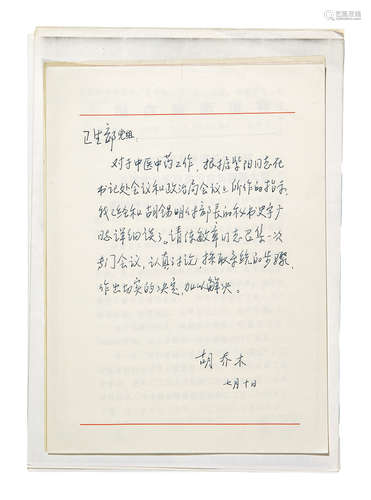 卫生部党组：
对于中医中药工作，根据紫阳同志在
书记处会议和政治局会议上所作的指示，
我已经和胡锡明付部长的秘书史宇广
同志详细谈了。请陈敏章同志召集一次
专门会议，认真讨论，採取系统的步骤，
作出切实的决定，加以解决。
胡乔木
七月十日